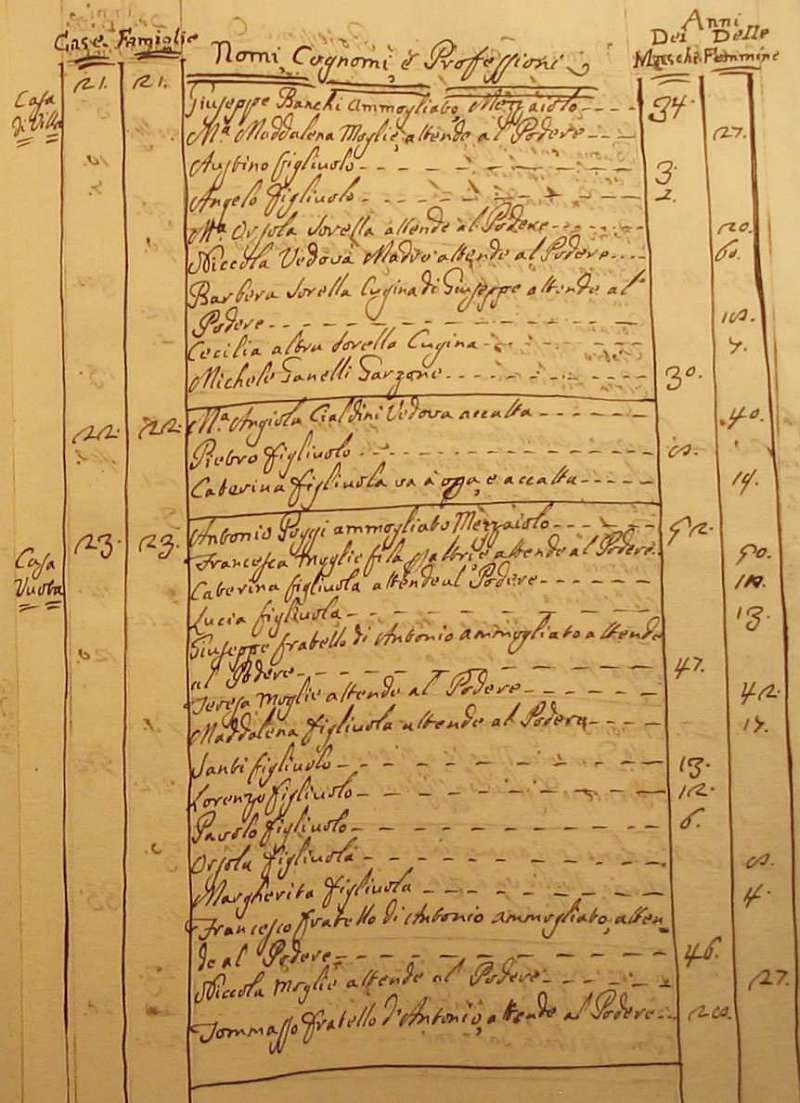 Case Famiglie Nomi, Cognomi, e Professioni Anni
Dei Maschi Delle Femmine
Casa di Villa 21. 21. Giuseppe Banchi Ammogliato, Mezzaiolo 34
M.a Maddalena Moglie, attende al Podere 27.
figliuolo 3.
Angelo figliuolo 2.
M.a Orsola sorella attende al Podere 20.
Niccola Vedova Madre attende al Podere 60.
Barbera sorella Cugina di Giuseppe attende al
Podere
Cecilia altra sorella Cugina
Michele Garzone 30.
22. 22. M.a Angiola Cialdini Vedova accatta 40.
Pietro figliuolo
Caterina figliuola va à opa, e accatta 14.
Casa Vuota 23. 23. Antonio Poggi ammogliato Mezzaiolo 52.
Francesca moglie fila attende al Podere 50.
Caterina figliuola attende al Podere
Lucia figliuola 13.
Giuseppe fratello di Antonio ammogliato attende
al Podere 47.
Teresa moglie attende al Podere 42.
Maddalena figliuola attende al Podere
Santi figliuolo 13.
Lorenzo figliuolo 12.
Pavolo figliuolo 6.
Orsola figliuola
Margherita figliuola 4.
Francesco fratello di Antonio ammogliato, atten
de al Podere 46.
Niccola moglie attende al Podere 27.
Tommasso fratello d'Antonio, attende al Podere